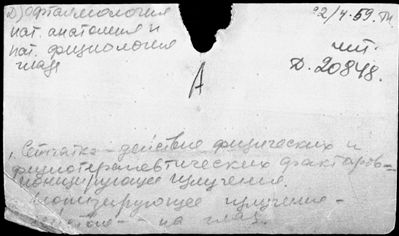 Д) Офтальмология
пат. анатомия и
пат. физиология
глаз
2/4.59.
чит.
D. 20848.
А
Сетчатка - действие физических и
физиотерапевтических факторов -
ионизирующее излучение.
Ионизирующее излучение -
действие - на глаз